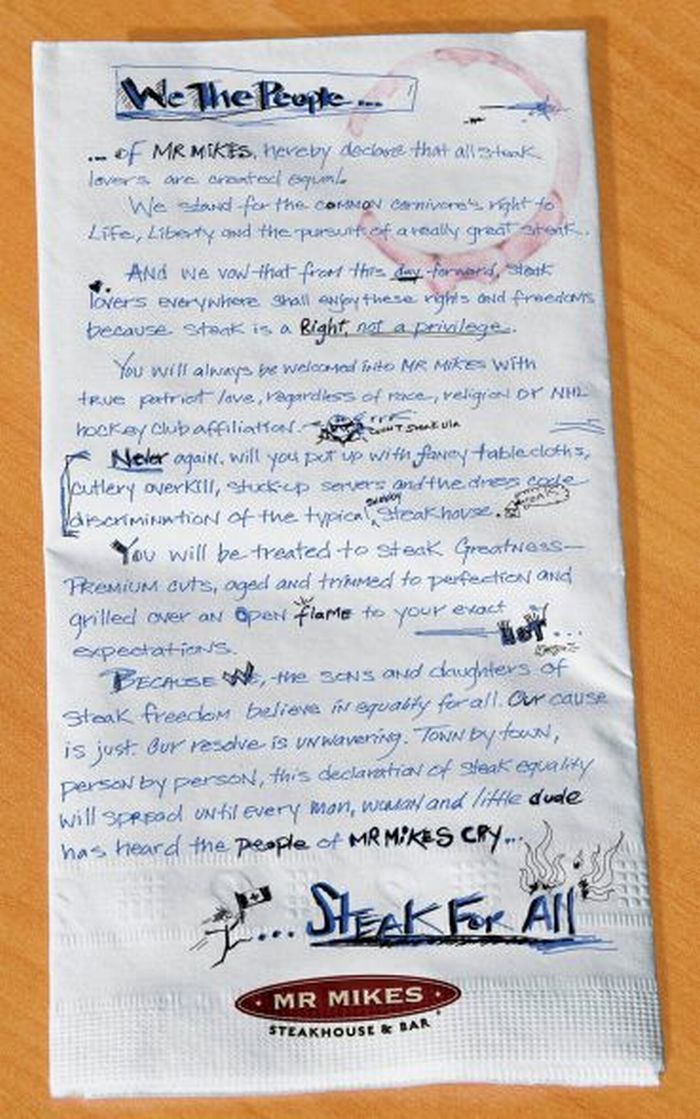 We The People...
... of MR MIKES, hereby declare that all steak
lovers are created equal.
We stand for the common carnivore's right to
Life, Liberty and the pursuit of a really great steak..
And we vow that from this day forward, steak
lovers everywhere shall enjoy these rights and freedoms
because steak is a Right, not a privilege.
You will always be welcomed into MR MIKES with
true patriot love, regardless of race, religion or NHL
hockey club affiliation.
Never again will you put up with fancy tablecloths,
cutlery overkill, stuck-up servers and the dress code
discrimination of the typical snobby steakhouse.
You will be treated to Steak Greatness—
Premium cuts, aged and trimmed to perfection and
grilled over an open flame to your exact
HOT...
expectations.
Because We, the sons and daughters of
steak freedom believe in equality for all. Our cause
is just. Our resolve is unwavering. Town by town,
person by person, this declaration of steak equality
will spread until every man, woman and little dude
has heard the people of MR MIKES CRY...
... Steak For All
MR MIKES
STEAKHOUSE & BAR